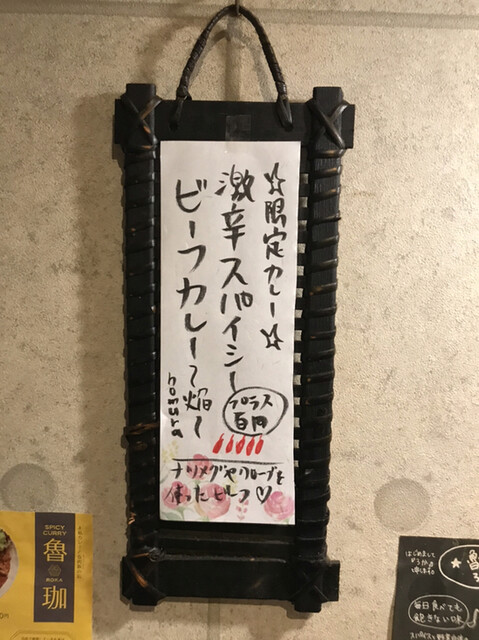 ☆限定カレー☆
激辛スパイシー
ビーフカレー〜焔〜
homura
プラス
百円
ナツメグやクローブを
使ったビーフ♡
SPICY
CURRY
魯
珈
はじめまして
毎日食べても
飽きない味